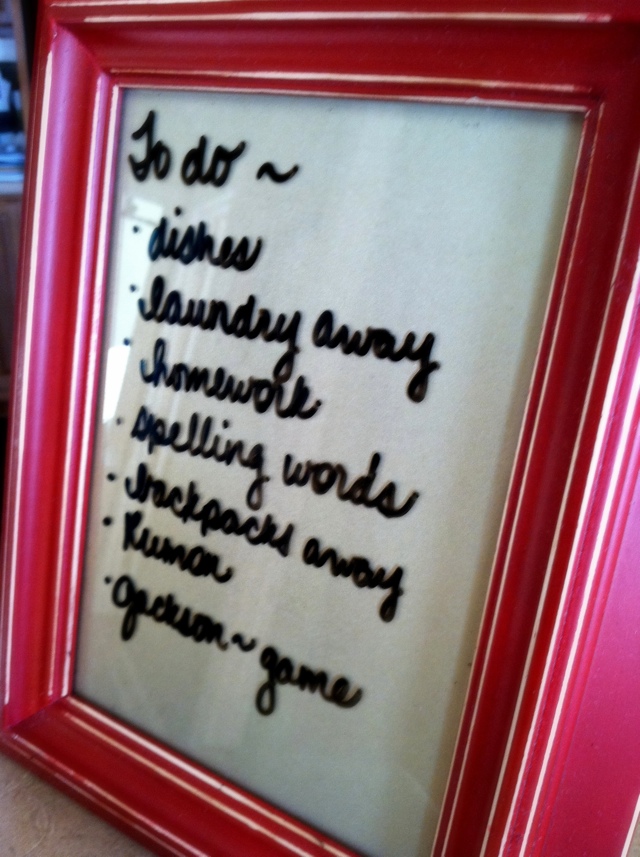 To do ~
· dishes
· laundry away
· homework
· spelling words
· backpacks away
· Kumon
· Jackson ~ game